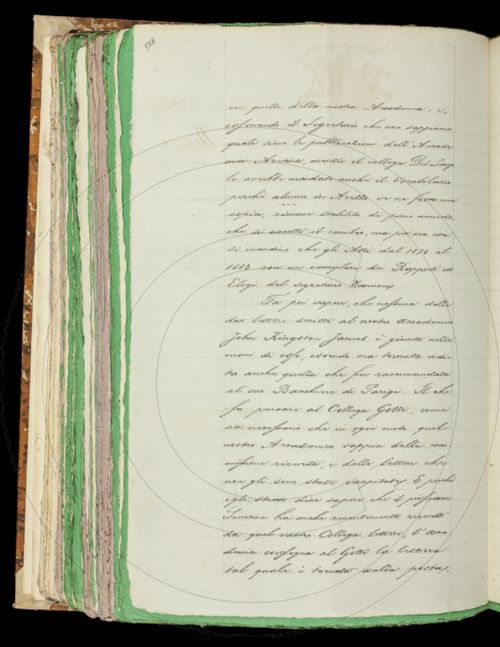 518
con quelle della nostra Accademia. E,
osservando il Segretario che non sappiamo
quali siano le pubblicazioni dell'Accade
mia Aretina, mentre il collega Del Lungo
le avrebbe mandato anche il Vocabolario
perchè almeno in Arezzo ve ne fosse una
copia, rimane stabilito di pieno accordo
che si accetti il cambio, ma per ora non
si mandino che gli Atti dal 1874 al
1883 con un esemplare dei Rapporti ed
Elogi del segretario Zannoni.
Fa poi sapere, che nessuna delle
due lettere scritte al nostro Accademico
John Kingston James è giunta nelle
mani di esso, essendo ora tornata indie
tro anche quella che fu raccomandata
al suo Banchiere di Parigi. Il che
fa pensare al Collega Gotti, come
sia necessario che in ogni modo quel
nostro Accademico sappia della com
missione ricevuta, e delle lettere che
non gli sono state recapitate. E poichè
egli stesso dice sapere che il professore
Severini ha anche recentemente ricevuto
da quel nostro Collega lettere, l'Acca
demia consegna al Gotti la lettera
tal quale è tornata dalla posta,